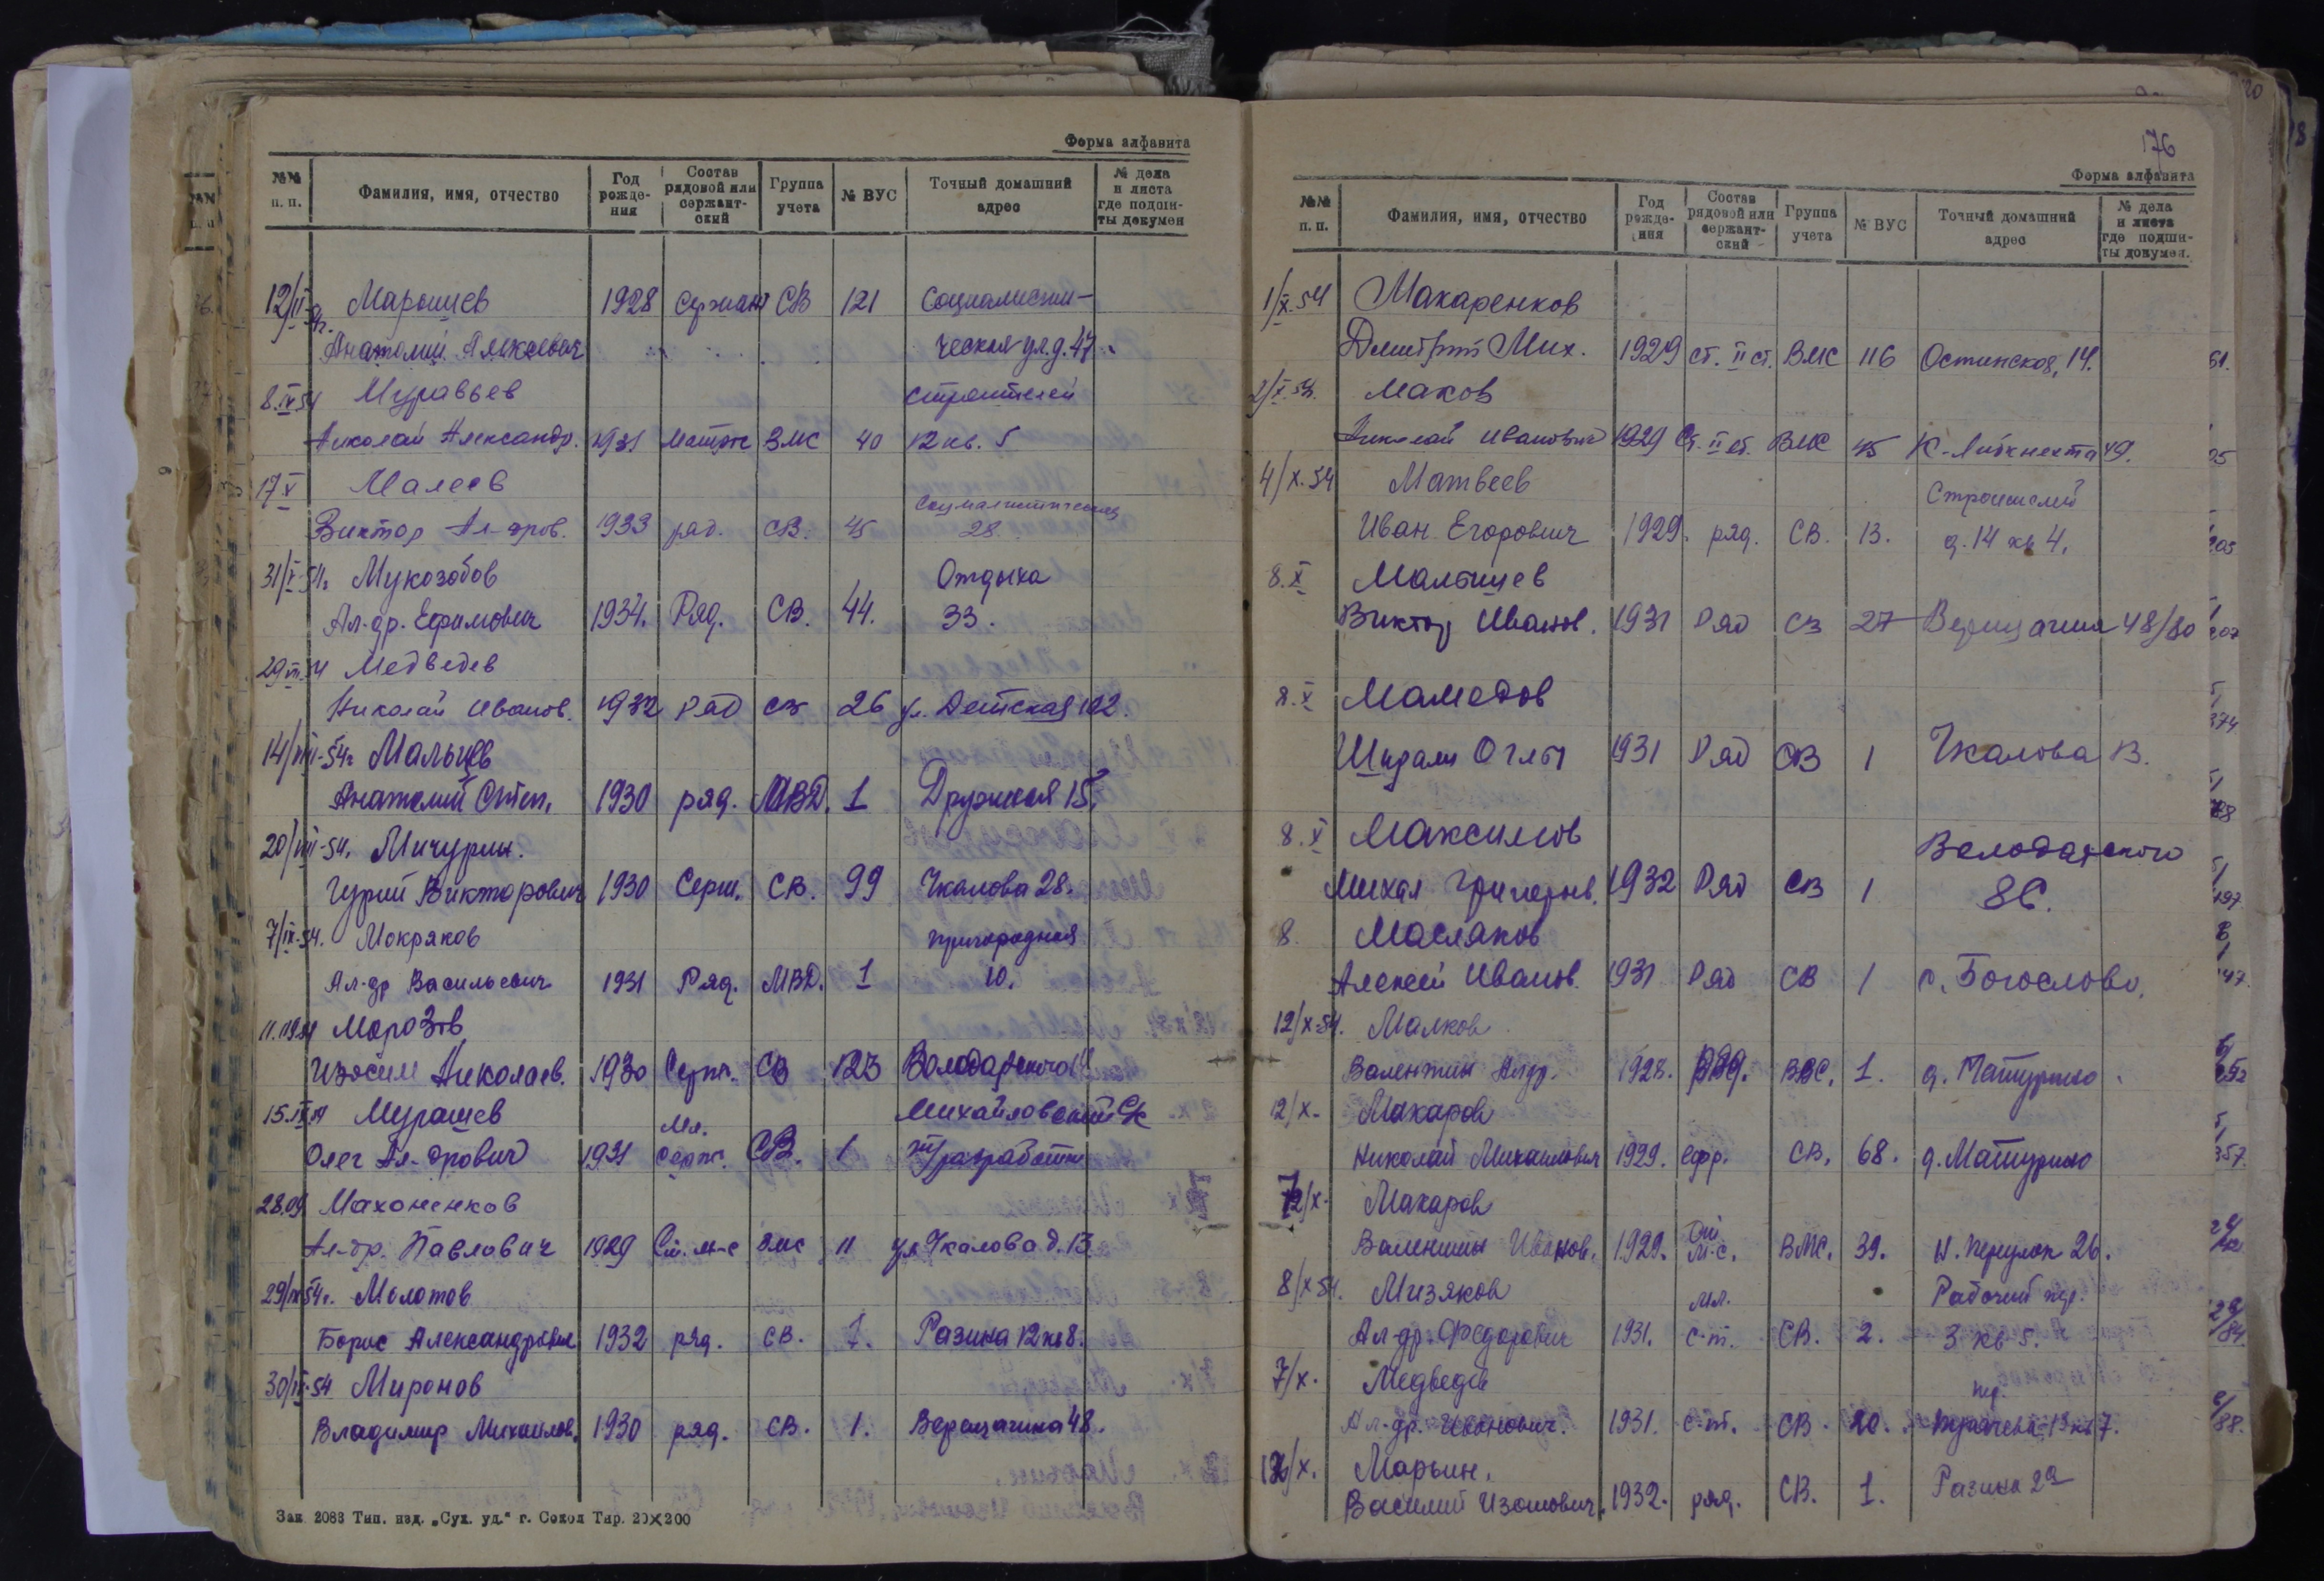 Форма алфавита
№№ п. п. Фамилия, имя, отчество Год рожде- ния Состав рядовой или сержант- ский Группа учета № ВУС Точный домашний адрес № дела и листа где подши- ты докумен
Марошиев 1928 Сержант СВ 121 Социалисти-
Анатолий Алексеевич ческая ул. д. 47.
8.IV 54 Муравьев Строителей
Николай Александр. 1931 ВМС 40 12 кв. 5
17 V Малеев Социалистическая
Виктор Ал-дров. 1933 ряд. СВ. 45 28.
31/V-54г. Мукозобов Отдыха
Ал-др. Ефимович 1934. Ряд. СВ. 44. 33.
Медведев
Николай Иванов. 1932 ряд СВ 26 ул. Детская 102.
14/VIII-54г Мальцев
Анатолий Степ. 1930 ряд. МВД. 1 Дружная 15.
20/VIII-54. Мичурин.
Гурий Викторович 1930 Серж. СВ. 99 Чкалова 28.
7/IX-54. Мокряков Пригородная
Ал-др Васильевич 1931 Ряд. МВД. 1 10.
Морозов
Изосим Николаев. 1930 Серж. СВ 123 Володарского
15.IX 54 Мурашев Михайловский с/с
Олег Ал-дрович 1931 Мл. серж. СВ. 1 т/разработки
28.09 Махоненков
Ал-др. Павлович 1929 Ст. м-с ВМС 11 ул Чкалова д. 13
29/IX 54г. Молотов
Борис Александрович 1932 ряд. СВ. 1. Разина 12 кв 8.
30/IX-54 Миронов
Владимир Михайлов. 1930 ряд. СВ. 1. Верещагина 48.
Зак 2088 Тип. изд. „Сух. уд.“ г. Сокол Тир. 20×200
176
Форма алфавита
№№ п. п. Фамилия, имя, отчество Год рожде- ния Состав рядовой или сержант- ский Группа учета № ВУС Точный домашний адрес № дела и листа где подши- ты докумен.
1/X-54 Макаренков
Дмитрий Мих. 1929 ст. II ст. ВМС 116 Остинская, 14.
2/X-54. Маков
Николай Иванович 1929 Ст. II ст. ВМС 45 К-Либкнехта 49.
4/X-54 Матвеев Строителей
Иван Егорович 1929. ряд. СВ. 13. д. 14 кв 4.
8.X Малышев
Виктор Иванов. 1931 Ряд СВ 27 Верещагина 48/80
8.X Мамедов
Оглы 1931 Ряд СВ 1 Чкалова 13.
8.X Максимов Володарского
Михаил Григорьев. 1932 Ряд СВ 1
8. Масляков
Алексей Иванов. 1931 Ряд СВ 1 с. Богослово.
12/X-54. Малков
Валентин Алдр. 1928. ряд. ВВС. 1. д. Матурино.
12/X- Макаров
Николай Михаилович 1929. ефр. СВ. 68. д. Матурино
12/X- Макаров
Валентин Иванов. 1929. Ст. м-с. ВМС. 39. Н. Переулок 26.
8/X 54. Мизяков Рабочий пер.
Ал-др. Федорович 1931. Мл. с-т. СВ. 2. 3 кв 5.
7/X. Медведев пер.
Ал-др. Иванович. 1931. с-т. СВ. 20.
Марьин.
Василий Изотович. 1932. ряд. СВ. 1. Разина 2а